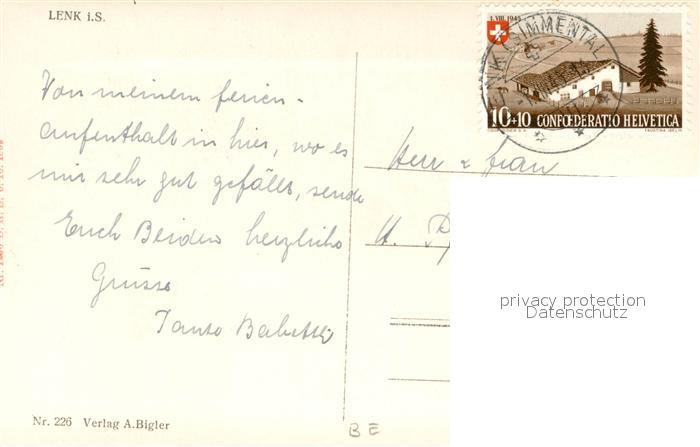 LENK i.S.
1. VIII. 1945
LENK (SIMMENTAL)
10+10 CONFOEDERATIO HELVETICA
COURVOISIER S.A.
Von meinem ferien-
aufenthalt in hier, wo es
mir sehr gut gefällt, sende
Euch Beiden herzliche
Grüsse
Tante Babette
Herr & Frau
H.
privacy protection
Datenschutz
Nr. 226 Verlag A. Bigler
BE